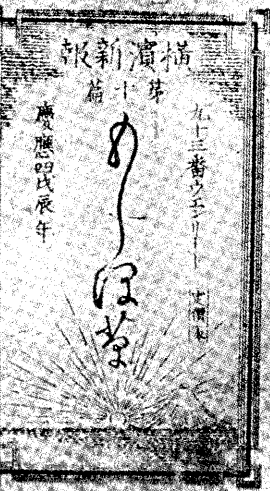 橫濱新報
第十篇
九十三番ウエンリート
定價
もしほ草
慶應四戊辰年